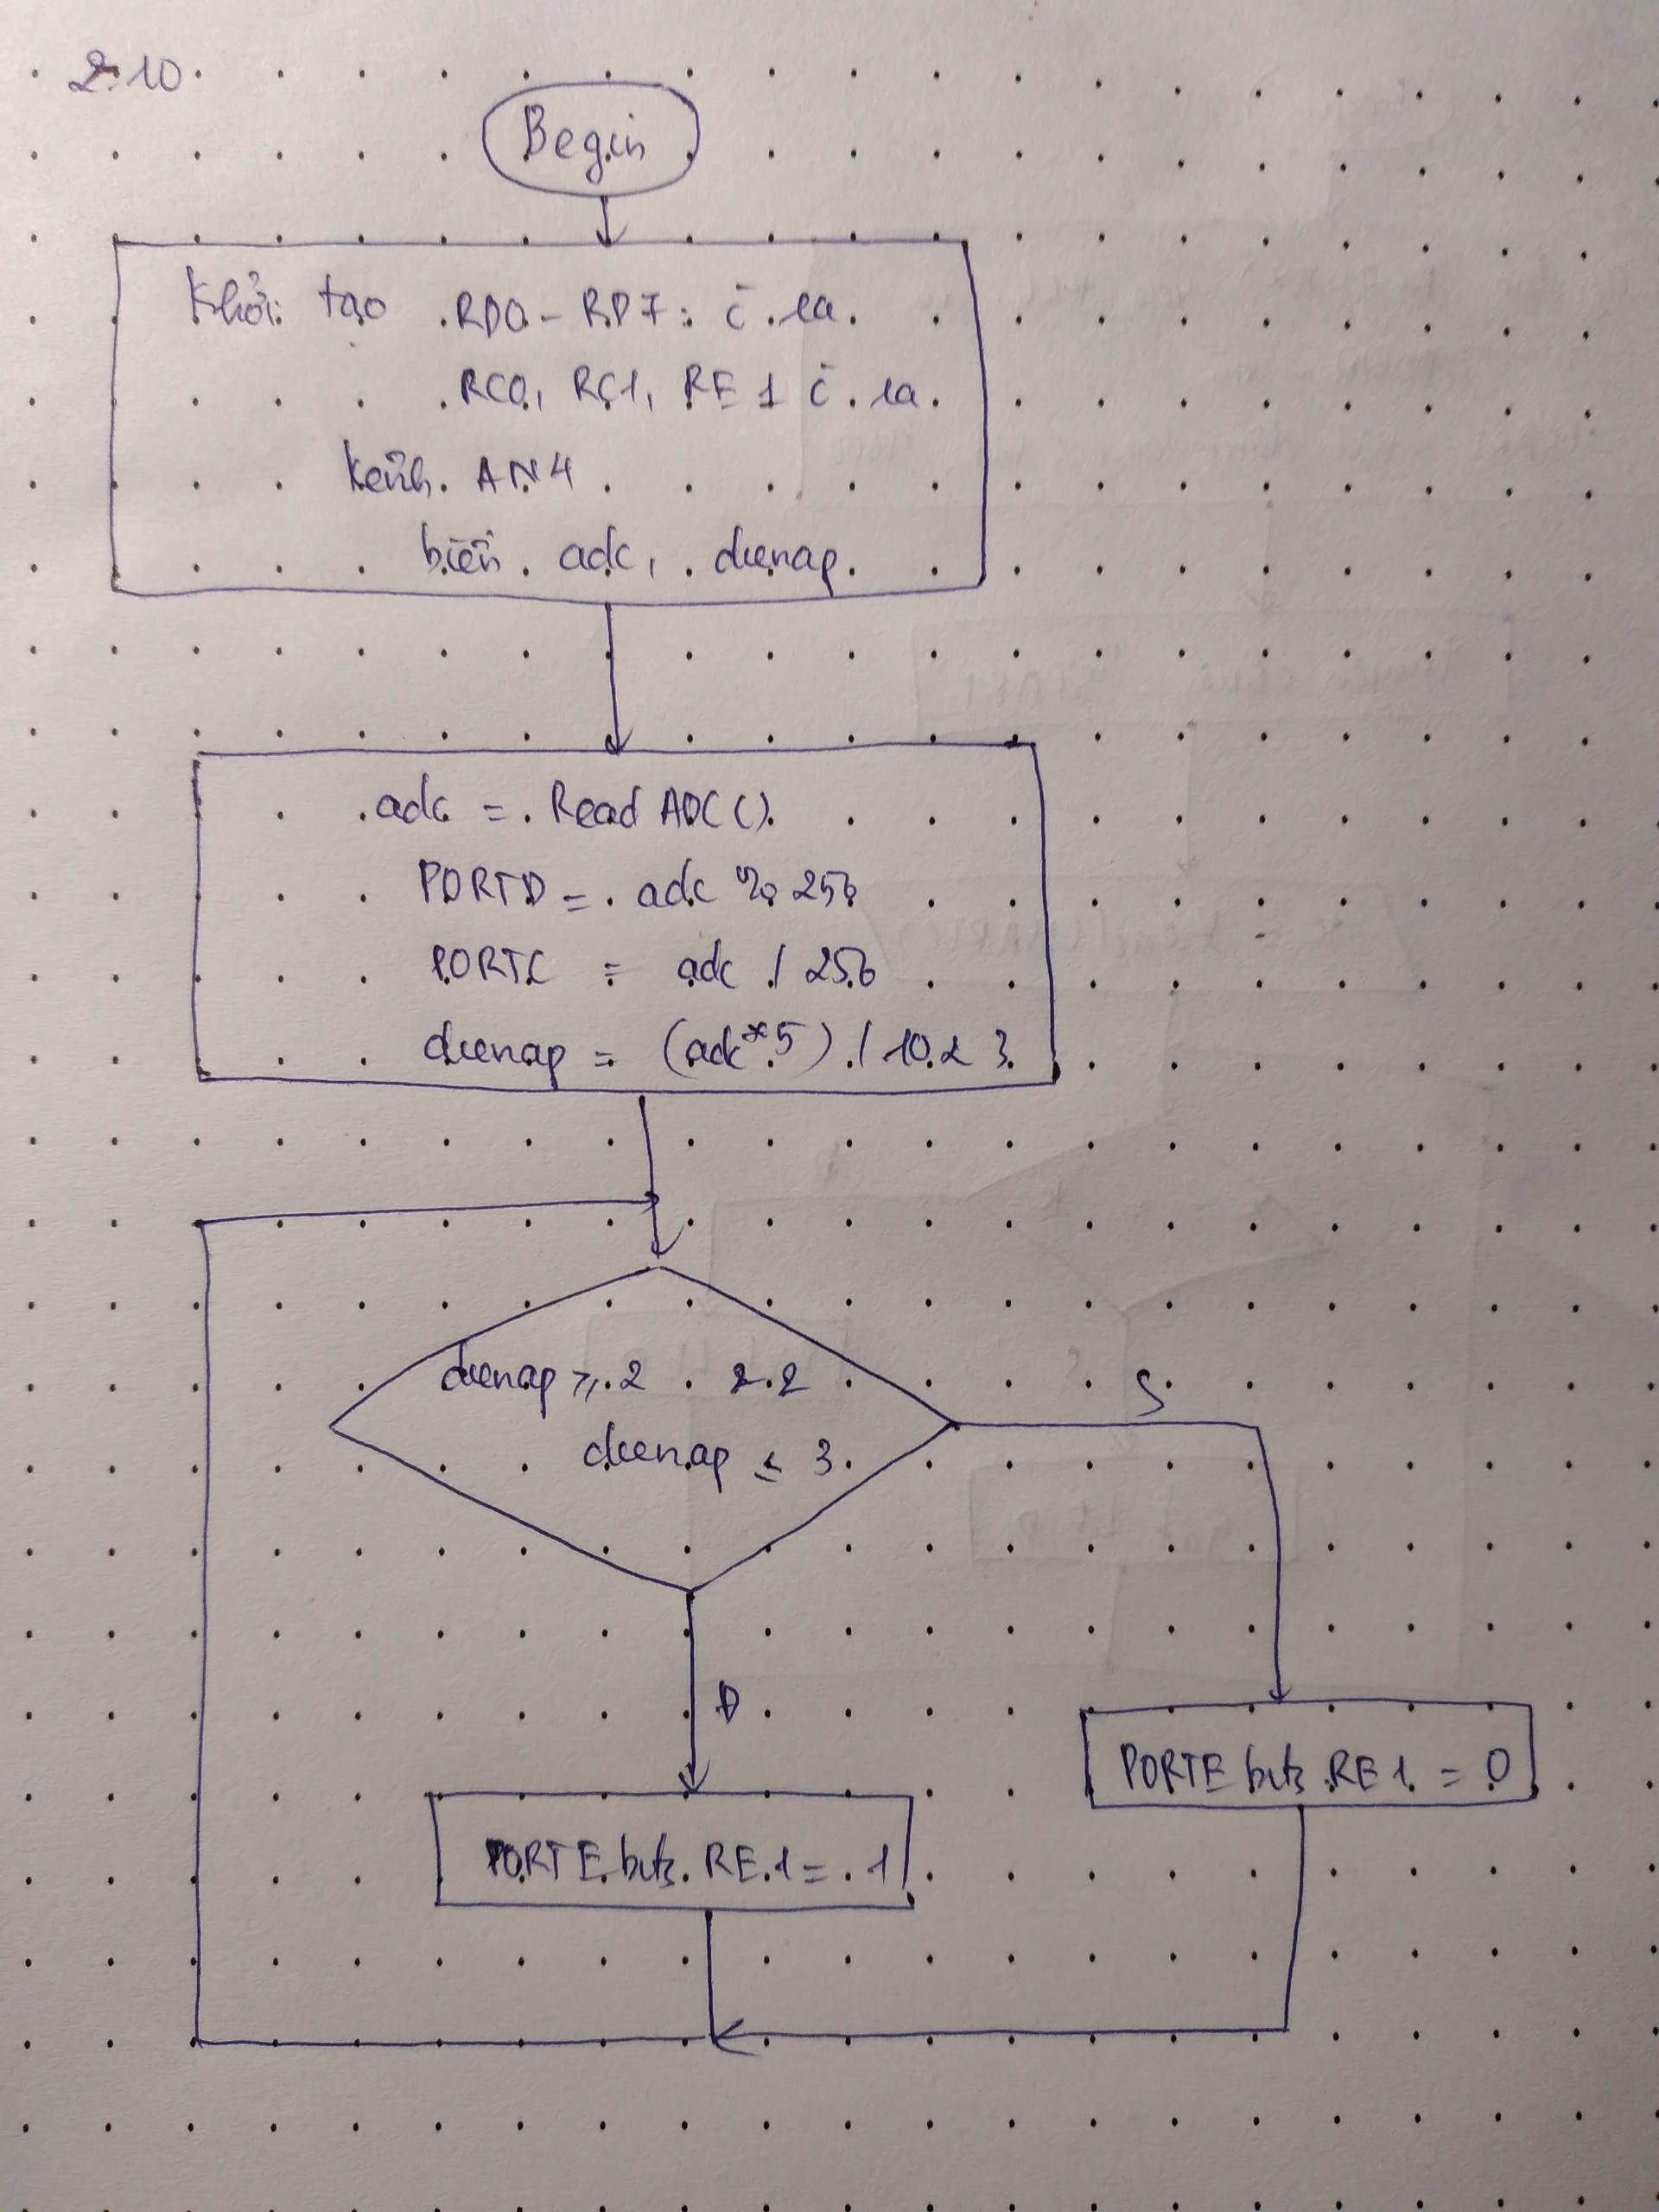 2.10
Begin
Khởi tạo RD0 - RD7: c̄ ra
RC0, RC1, RE1 c̄ ra
Kênh AN4
biến adc, dienap
adc = Read ADC ()
PORTD = adc % 256
PORTC = adc / 256
dienap = (adc * 5) / 1023
dienap ≥ 2 &&
dienap ≤ 3
S
Đ
PORTE bits. RE1 = 0
PORTE bits. RE1 = 1